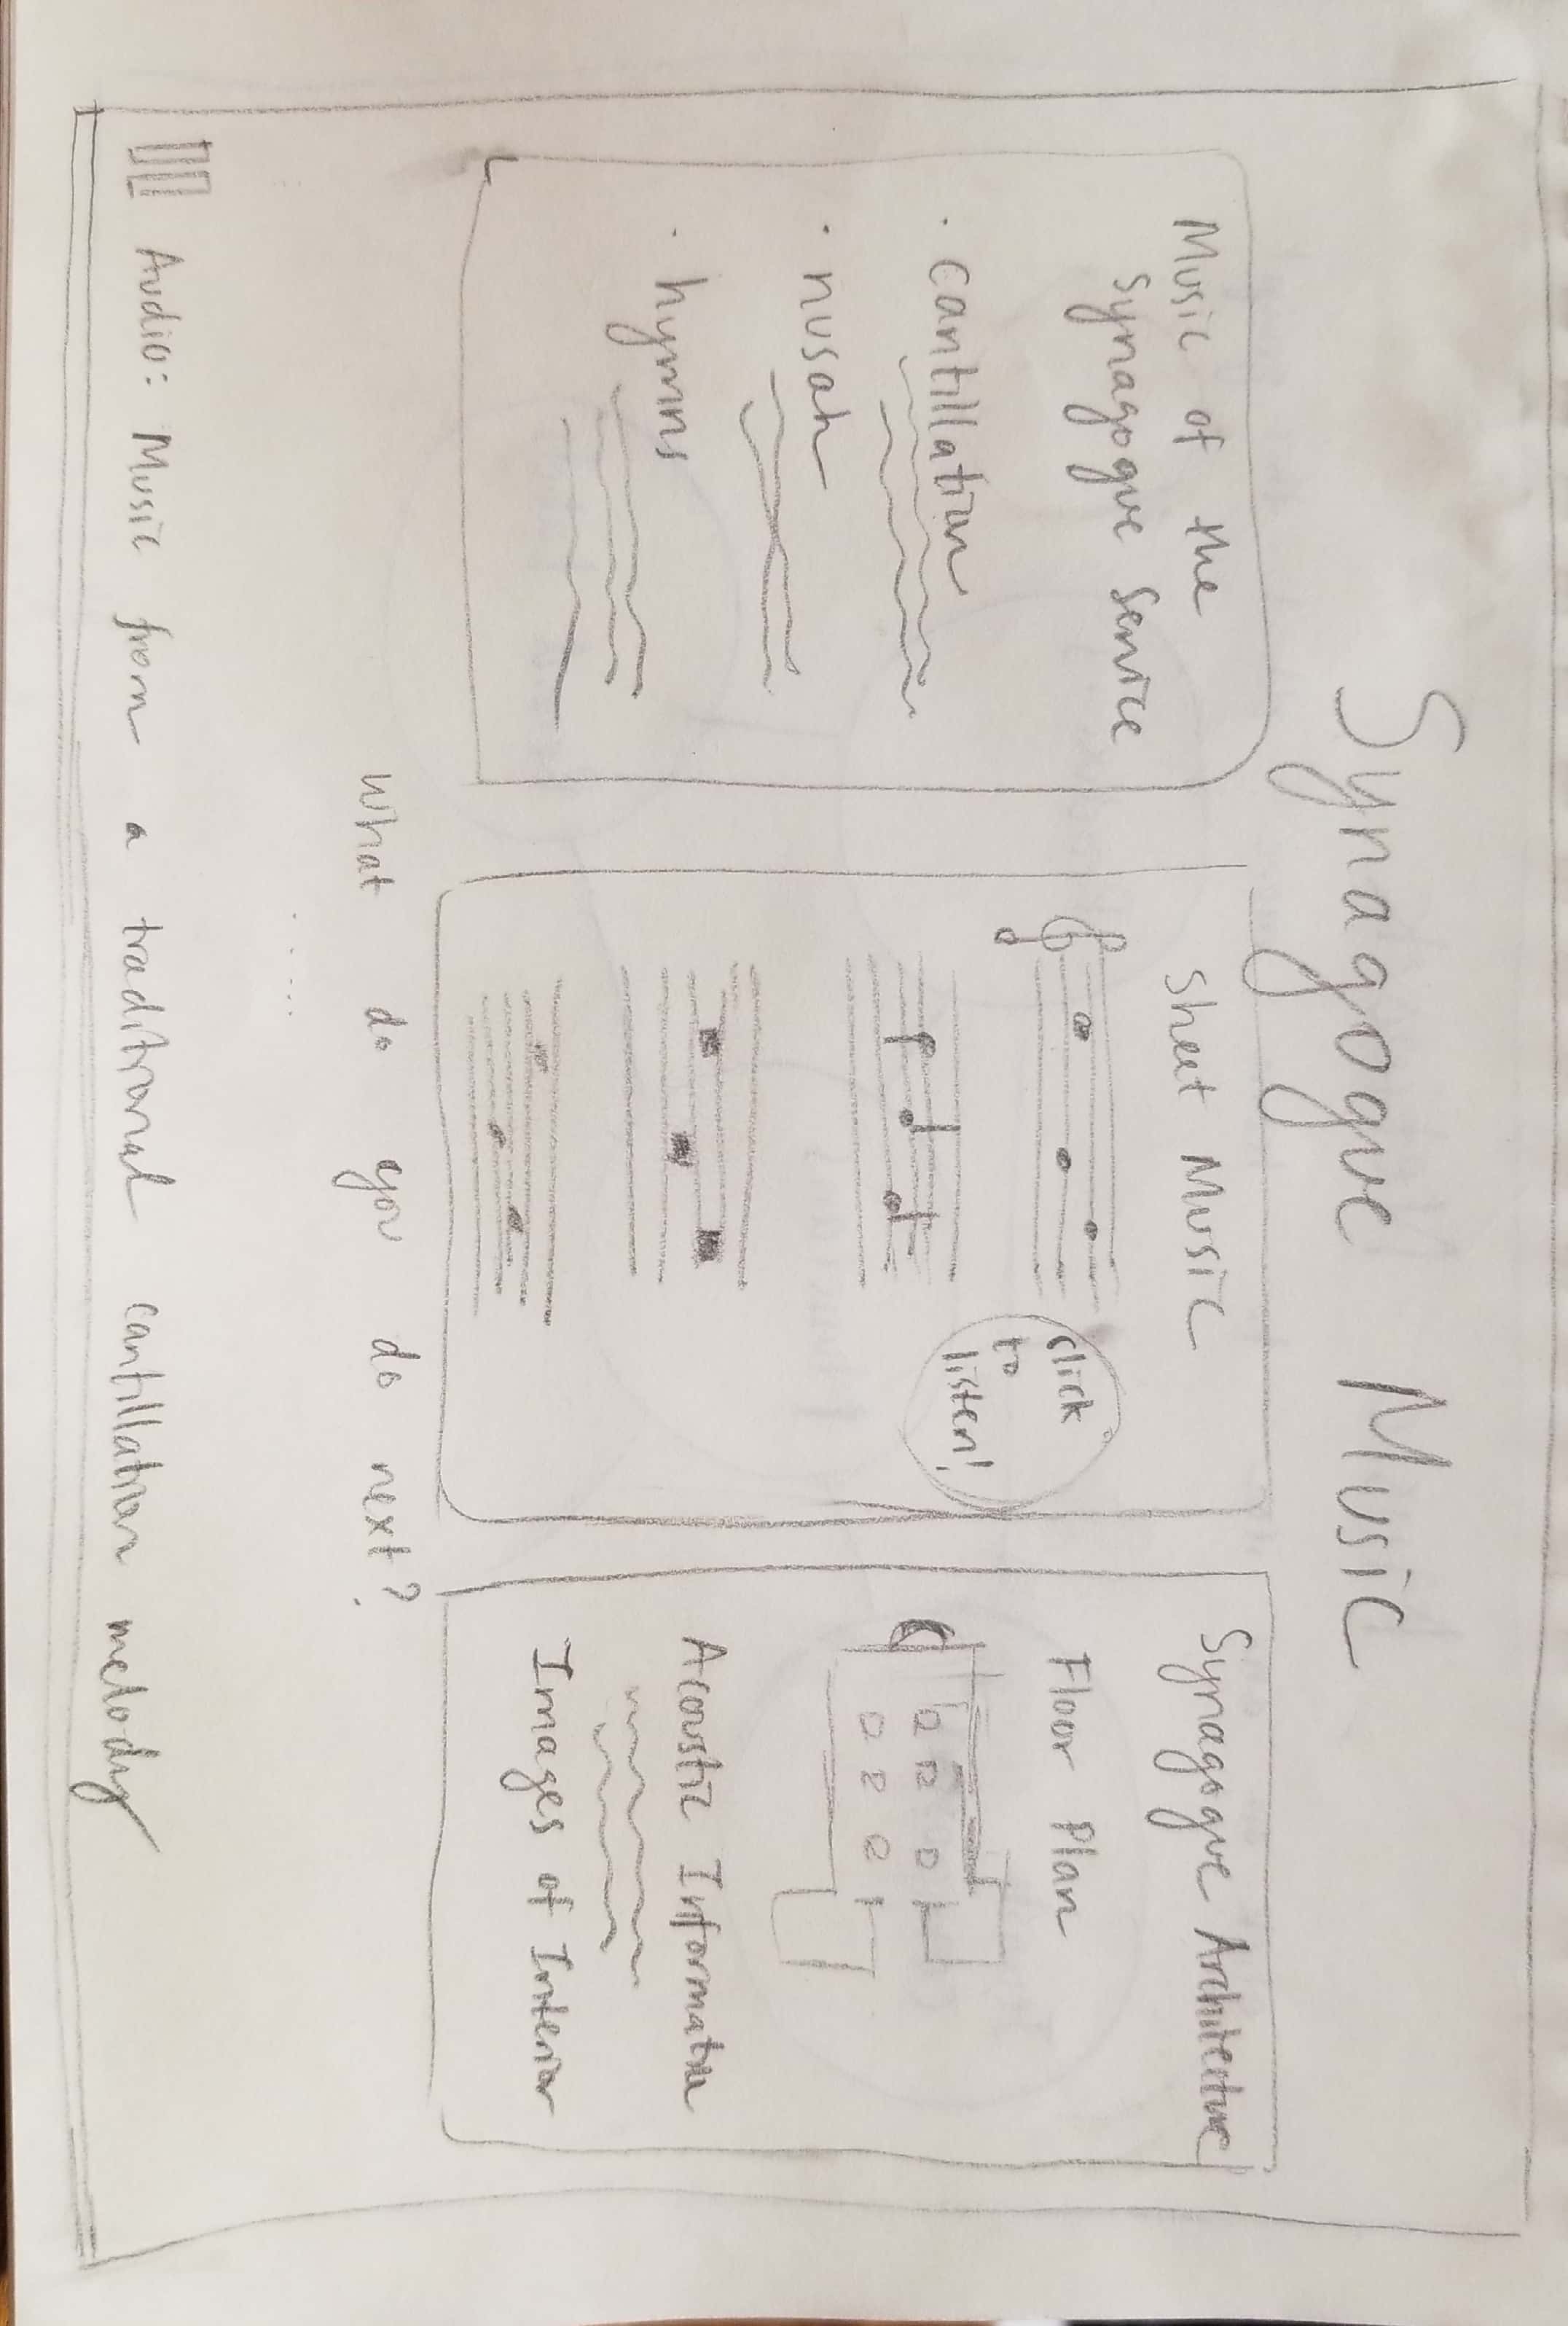 Synagogue Music
Music of the
synagogue service
· cantillation
· nusah
· hymns
Sheet Music
click
to
listen!
Synagogue Architecture
Floor Plan
Acoustic Information
Images of Interior
What do you do next?
Audio: Music from a traditional cantillation melody